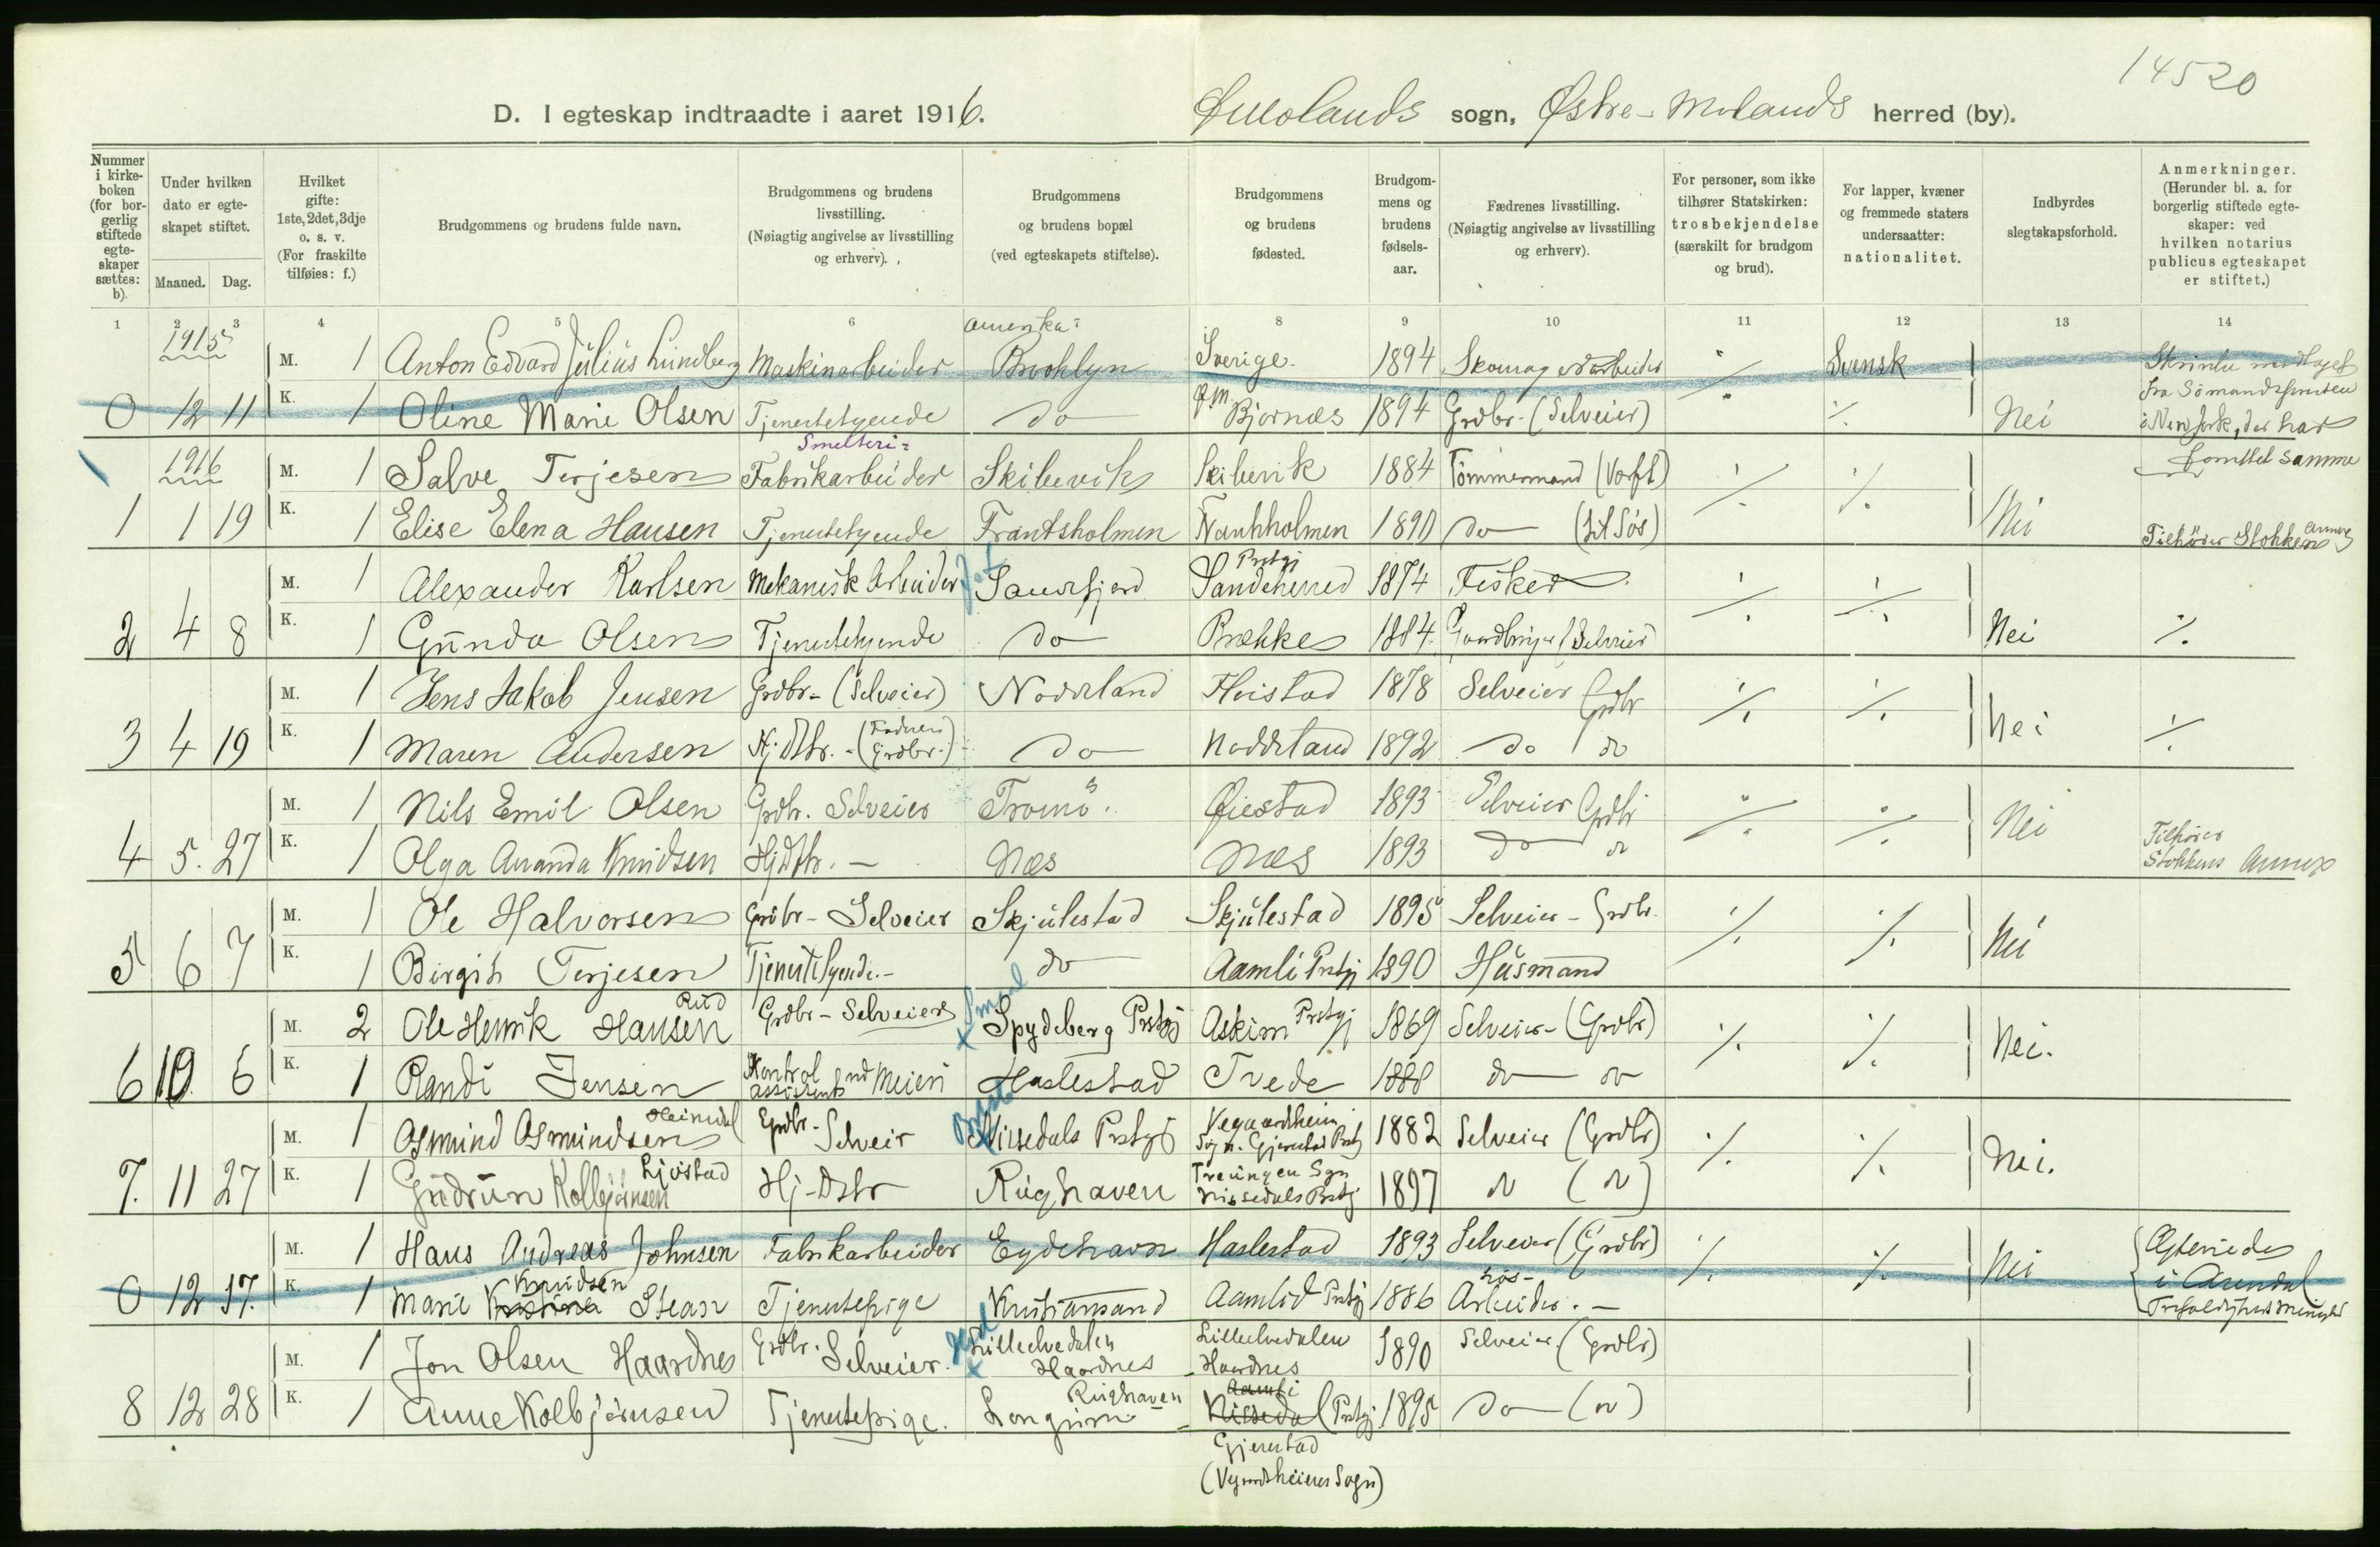 14520
D. I egteskap indtraadte i aaret 1916. Ø Molands sogn, Østre-Molands herred (by).
Nummer i kirkeboken (for borgerlig stiftede egteskaper sættes: b).
Under hvilken dato er egteskapet stiftet.
Maaned. Dag.
Hvilket gifte: 1ste, 2det, 3dje o. s. v. (For fraskilte tilføies: f.)
Brudgommens og brudens fulde navn.
Brudgommens og brudens livsstilling. (Nøiagtig angivelse av livsstilling og erhverv).
Brudgommens og brudens bopæl (ved egteskapets stiftelse).
Brudgommens og brudens fødested.
Brudgommens og brudens fødselsaar.
Fædrenes livsstilling. (Nøiagtig angivelse av livsstilling og erhverv).
For personer, som ikke tilhører Statskirken: trosbekjendelse (særskilt for brudgom og brud).
For lapper, kvæner og fremmede staters undersaatter: nationalitet.
Indbyrdes slegtskapsforhold.
Anmerkninger. (Herunder bl. a. for borgerlig stiftede egteskaper: ved hvilken notarius publicus egteskapet er stiftet.)
1 2 3 4 5 6 8 9 10 11 12 13 14
1915 M. 1 Anton Edvard Julius Lundberg Maskinarbeider Amerika: Brooklyn Sverige. 1894 Skomagerarbeider ·/· Svensk
0 12 11 K. 1 Oline Marie Olsen Tjenestetyende do Bjørnes 1894 Grdbr. (Selveier) ·/. Nei
fra Sømandskirken i New York, der har
samme
1916 M. 1 Salve Terjesen Smelteri- Fabrikarbeider Skibevik Skibevik 1884 Tømmermand (Værft) ·/. ·/.
1 1 19 K. 1 Elise Elena Hansen Tjenestetyende Frantsholmen Narkholmen 1890 do (til Søs) Nei Tilhører Stokken Annex
M. 1 Alexander Karlsen Mekanisk Arbeider Sandefjord Sandeherred Prstgj 1874 Fisker ·/. ·/.
2 4 8 K. 1 Gunda Olsen Tjenestetyende do Brække 1884 Gaardbruger (Selveier) Nei ·/.
M. 1 Jens Jakob Jensen Grdbr- (Selveier) Noddeland Fleistad 1878 Selveier Grdbr ·/. ·/.
3 4 19 K. 1 Maren Andersen Hj.Dtr. - (Faderen Grdbr.) do Noddeland 1892 do do Nei ·/.
M. 1 Nils Emil Olsen Grdbr. Selveier Tromø. Øiestad 1893 Selveier Grdbr ·/. ·/.
4 5. 27 K. 1 Olga Amanda Knudsen Hjdtr. - Næs Næs 1893 do do Nei Tilhører Stokkens Annex
M. 1 Ole Halvorsen Grdbr - Selveier Skjulestad Skjulestad 1895 Selveier - Grdbr. ·/. ·/.
5 6 7 K. 1 Birgit Terjesen Tjenestetyende.- do Aamli Prstgj 1890 Husmand Nei
M. 2 Ole Henrik Hansen Rud Grdbr - Selveier x Spydeberg Prstgj Askim Prstgj 1869 Selveier - (Grdbr) ·/. ·/.
6 10. 6 K. 1 Randi Jensen Kontrolassistent ved Meieri Haslestad Tvede 1888 do do Nei.
M. 1 Asmund Asmundsen Heimdal Grdbr. - Selveir Nissedals Prstgj Vegaardsheim Sogn. Gjerestad Prstgj 1882 Selveier (Grdbr) ·/. ·/.
7. 11 27 K. 1 Gudrun Kolbjørnsen Ljøstad Hj-Dtr Rughaven Treungen Sgn Nissedals Prstgj 1897 do (do) Nei.
M. 1 Hans Andreas Johnsen Fabrikarbeider Eydehavn Haslestad 1893 Selveier (Grdbr) ·/. ·/. Nei
0 12 17. K. 1 Marie Knudsen Stean Tjenestepige Kristiansand Aamlid Prstgj 1886 Løs- Arbeider. - Ægteviede i Arendal Trefoldighets Menighet
M. 1 Jon Olsen Haardnes Grdbr. Selveier. x Lilleelvedalen Haardnes Lilleelvedalen Haardnes 1890 Selveier (Grdbr)
8 12 28 K. 1 Anne Kolbjørnsen Tjenestepige. Longum Rughaven Aamli Nissedal (Prstgj 1895 do (do)
Gjerestad
(Vegaardsheiens Sogn)